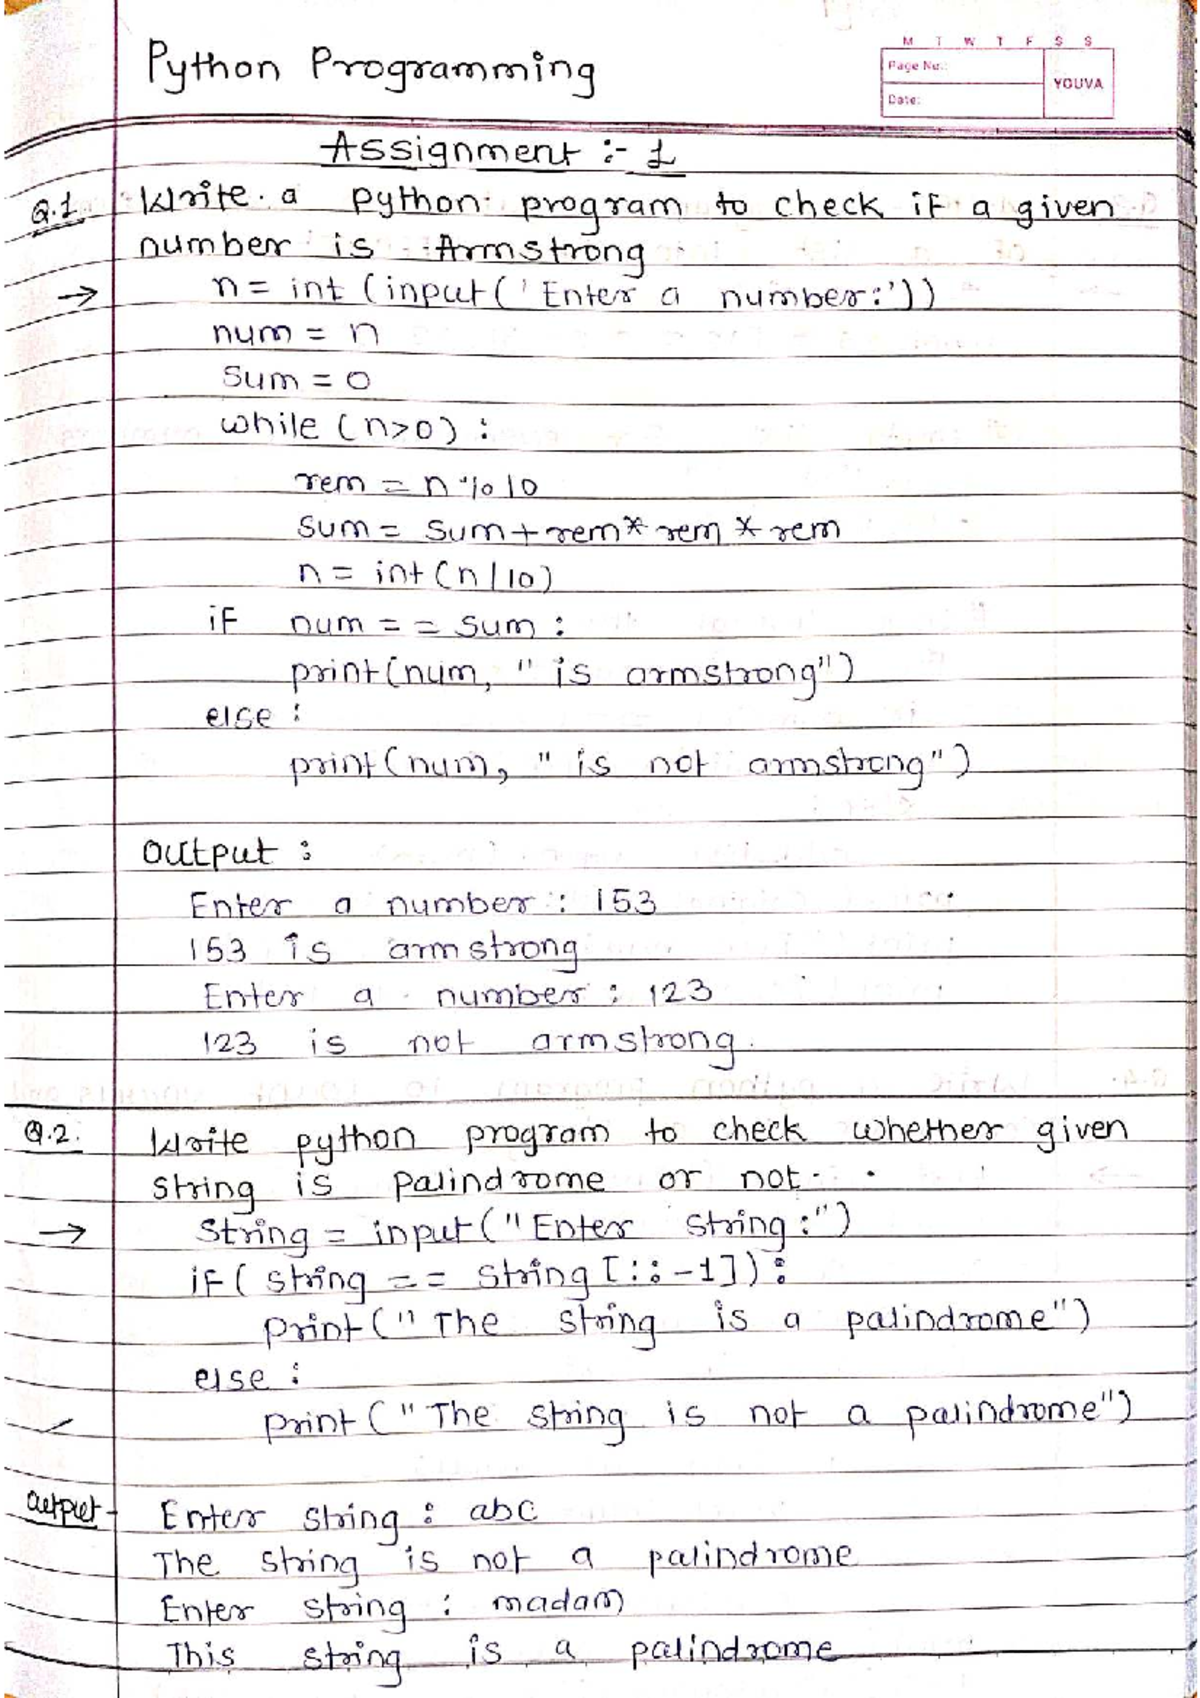 M T W T F S S
Python Programming
Page No.:
YOUVA
Date:
Assignment :- 1
Q.1 Write a python program to check if a given
number is Armstrong
→ n = int (input ('Enter a number:'))
num = n
sum = 0
while (n>0) :
rem = n % 10
sum = sum + rem * rem * rem
n = int (n/10)
if num == sum :
print(num, " is armstrong")
else :
print(num, " is not armstrong")
output :
Enter a number : 153
153 is armstrong
Enter a number : 123
123 is not armstrong.
Q.2. Write python program to check whether given
string is palindrome or not.
→ string = input ("Enter string:")
if ( string == string [::-1]) :
print ("The string is a palindrome")
else :
print ("The string is not a palindrome")
output - Enter string : abc
The string is not a palindrome
Enter string : madam
This string is a palindrome